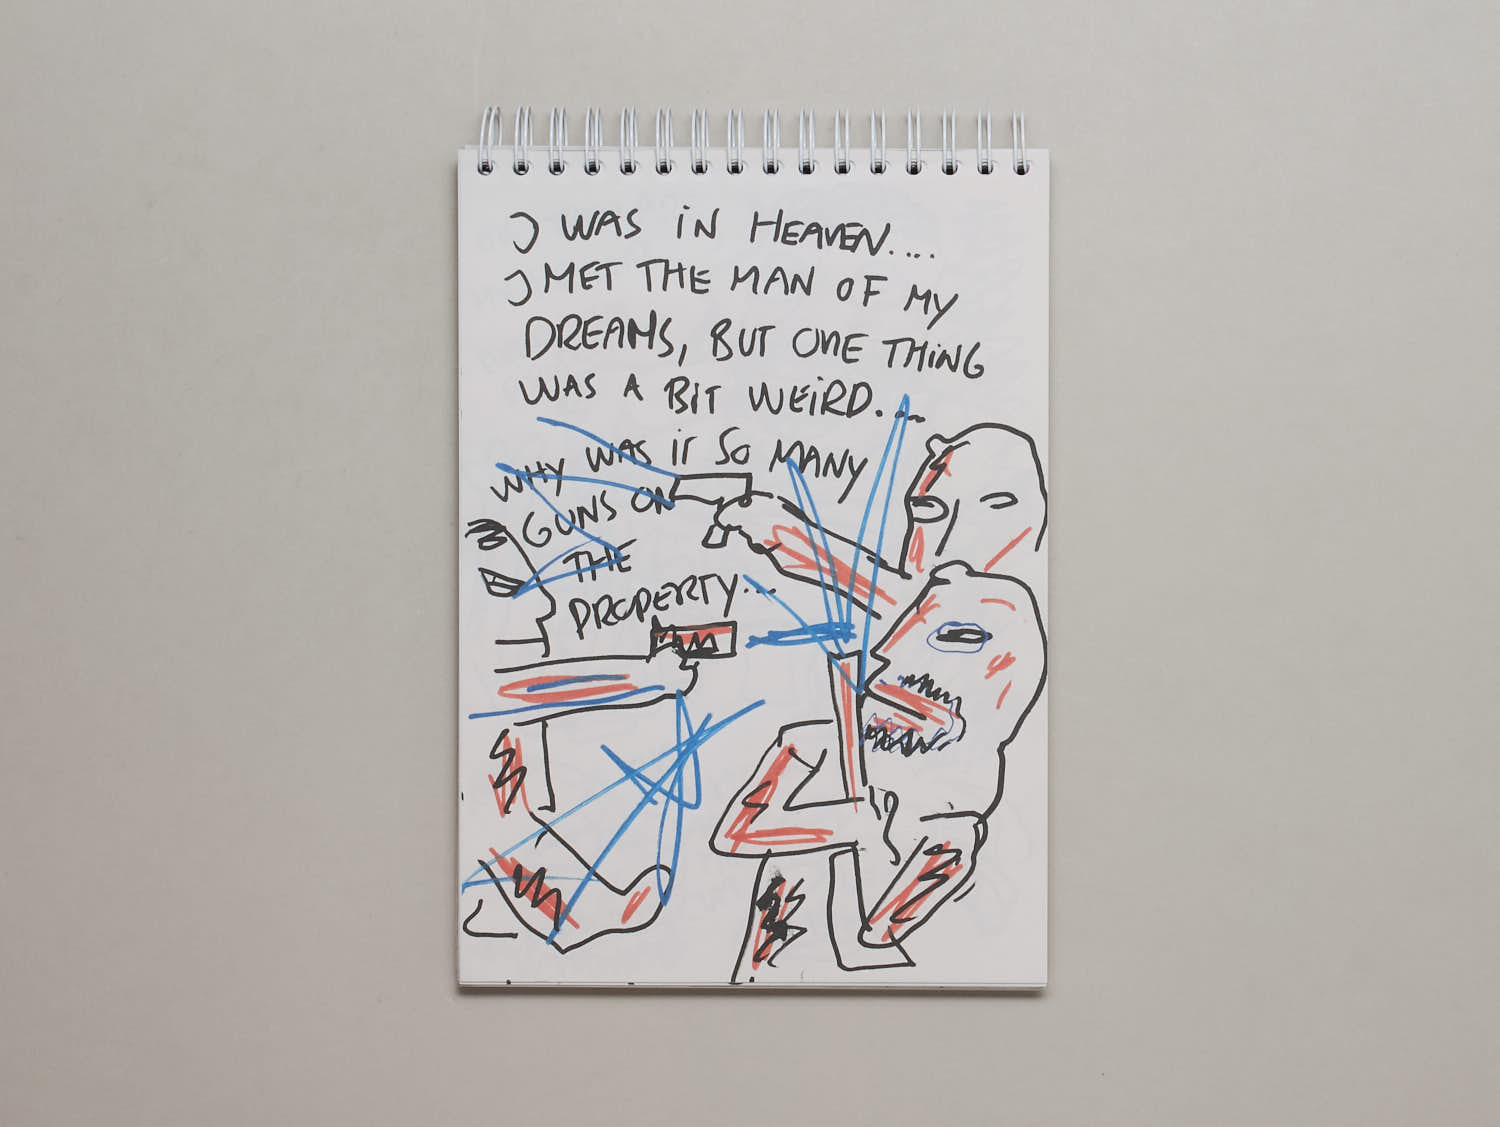 I WAS IN HEAVEN....
I MET THE MAN OF MY
DREAMS, BUT ONE THING
WAS A BIT WEIRD...
WHY WAS IT SO MANY
GUNS ON
THE
PROPERTY...